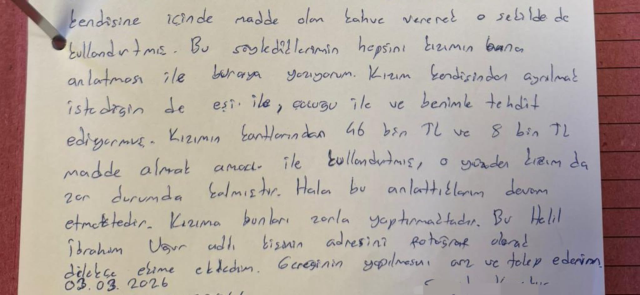 kendisine içinde madde olan kahve vererek o şekilde de
kullandırtmış. Bu söylediklerimin hepsini kızımın bana
anlatması ile buraya yazıyorum. Kızım kendisinden ayrılmak
istediğin de eşi ile, çocuğu ile ve benimle tehdit
ediyormuş. Kızımın kartlarından 46 bin TL ve 8 bin TL
madde almak amacı ile kullandırtmış, o yüzden kızım da
zor durumda kalmıştır. Halen bu anlattıklarım devam
etmektedir. Kızıma bunları zorla yaptırmaktadır. Bu Halil
İbrahim Uğur adlı kişinin adresini fotoğraf olarak
dilekçe ekime ekledim. Gereğinin yapılmasını arz ve talep ederim.
03.03.2026